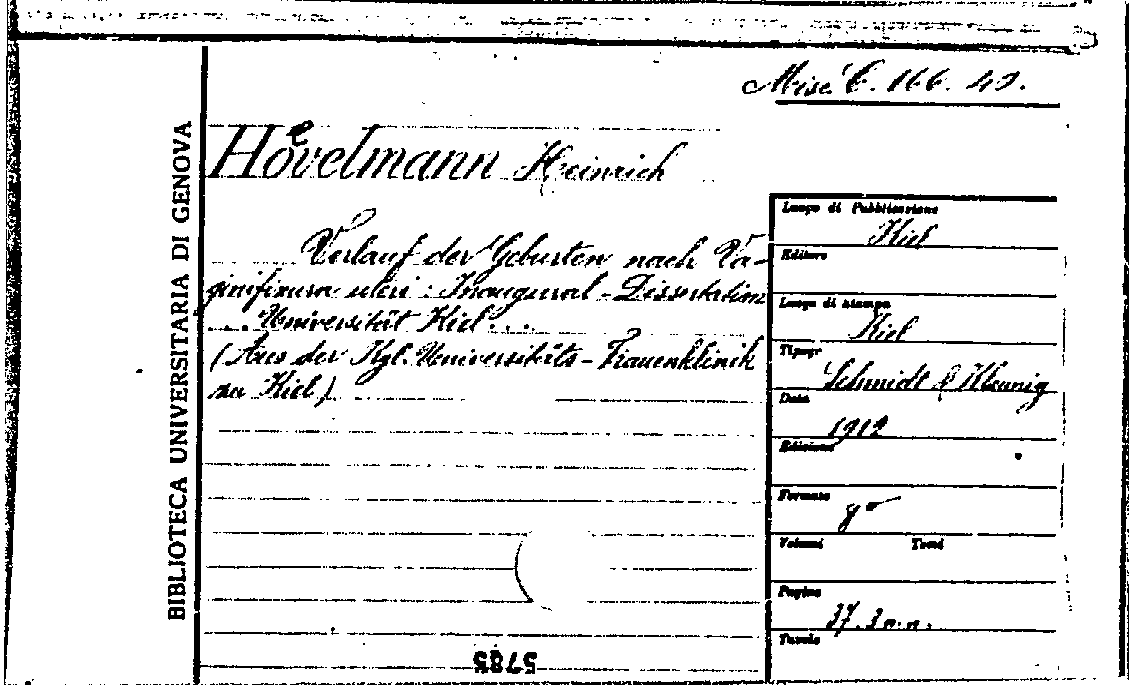 Misc. C. 166. 40.
BIBLIOTECA UNIVERSITARIA DI GENOVA
Hoevelmann Heinrich
Verlauf der Geburten nach Va-
ginifixura uteri : Inaugural-Dissertation
... Universität Kiel...
(Aus der Kgl. Universitäts-Frauenklinik
zu Kiel)
Luogo di Pubblicazione
Kiel
Editore
Luogo di stampa
Kiel
Tipogr
Schmidt & Klaunig
Data
1912
Edizione
Formato
8°
Volumi Tomi
Pagine
37. 3 n. n.
Tavole
5785